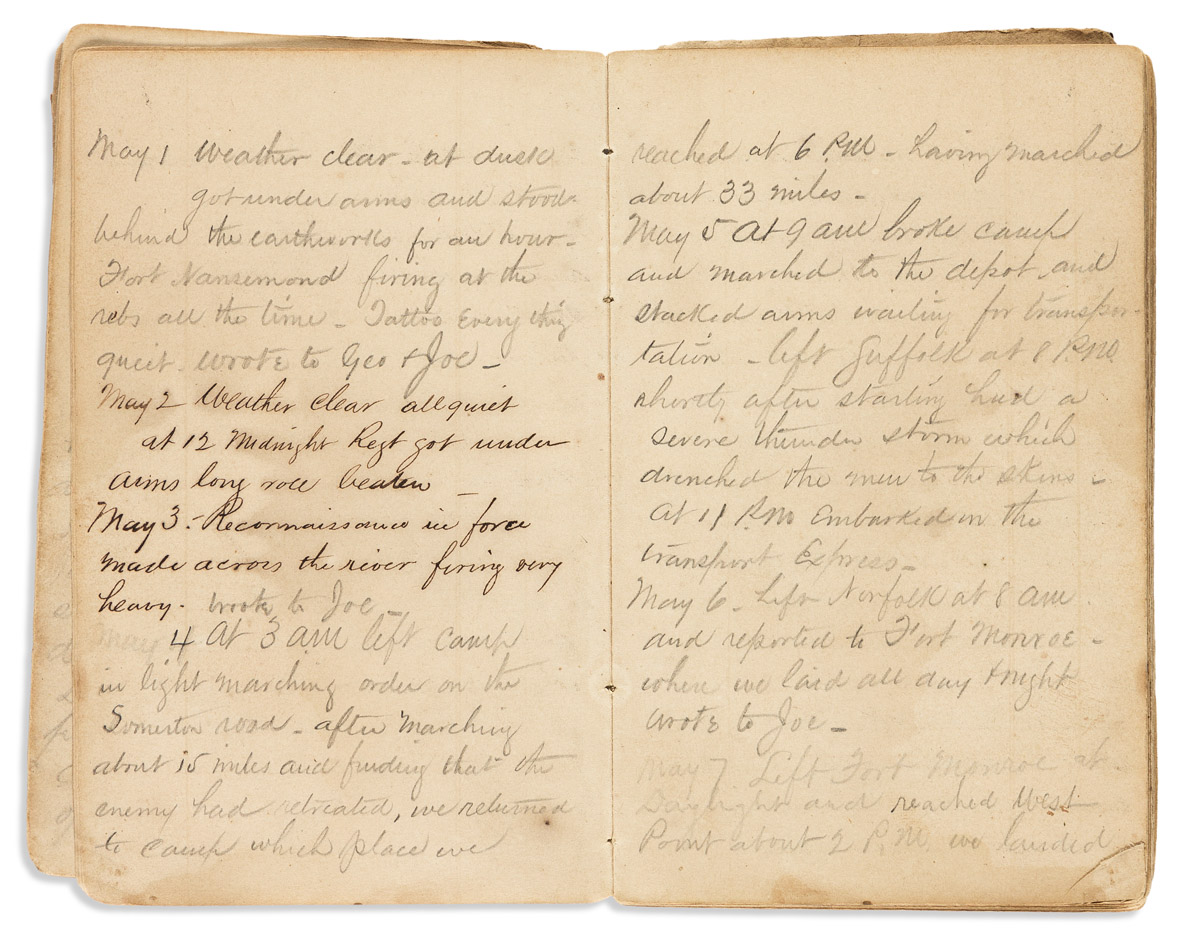 May 1 Weather clear - at dusk
got under arms and stood
behind the earthworks for an hour -
Fort Nansemond firing at the
rebs all the time - Tattoo Every thing
quiet. wrote to Geo & Joe -
May 2 Weather clear all quiet
at 12 Midnight Regt got under
arms long roll beaten -
May 3 - Reconnaissance in force
made across the river firing very
heavy. wrote to Joe -
May 4 At 3 am left camp
in light marching order on the
Somerton road - after marching
about 15 miles and finding that the
enemy had retreated, we returned
to camp which place we
reached at 6 P.M. - having marched
about 33 miles -
May 5 At 9 am broke camp
and marched to the depot and
stacked arms waiting for transpor-
tation - left Suffolk at 8 P.M.
shortly after starting had a
severe thunder storm which
drenched the men to the skins -
At 11 P.M. Embarked on the
transport Express -
May 6 - Left Norfolk at 8 am
and reported to Fort Monroe -
where we laid all day & night
wrote to Joe -
May 7 Left Fort Monroe at
Daylight and reached West
Point about 2 P.M. we landed